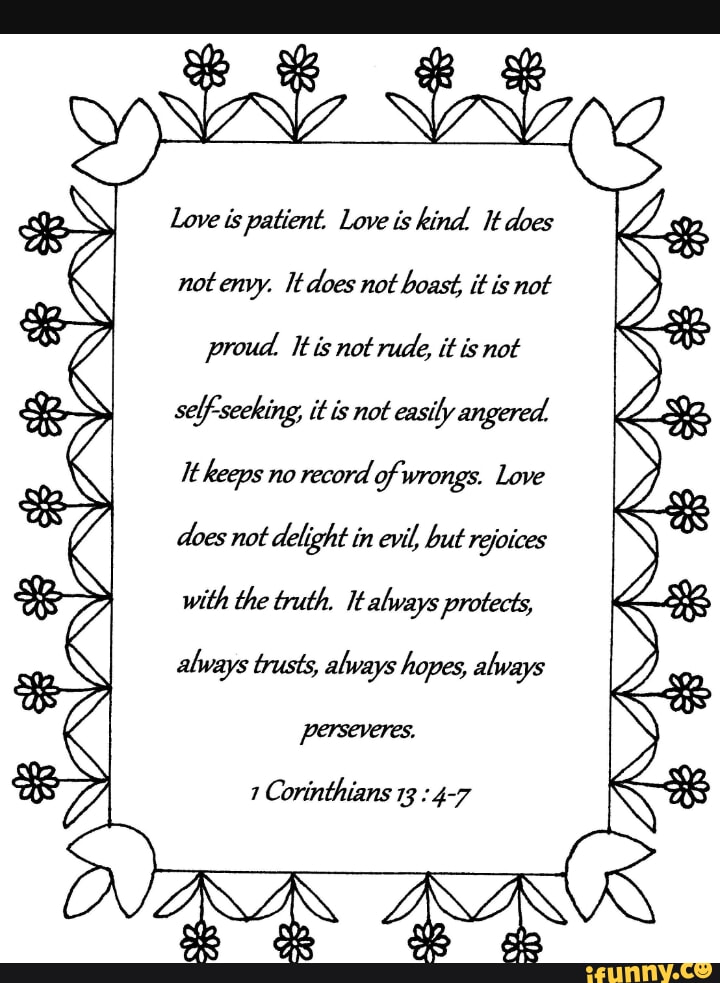 Love is patient. Love is kind. It does
not envy. It does not boast, it is not
proud. It is not rude, it is not
self-seeking, it is not easily angered.
It keeps no record of wrongs. Love
does not delight in evil, but rejoices
with the truth. It always protects,
always trusts, always hopes, always
perseveres.
1 Corinthians 13 : 4-7
ifunny.co